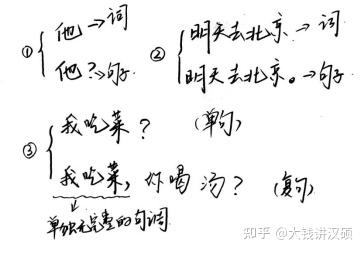 ① 他 → 词
他？→ 句子.
② 明天去北京 → 词
明天去北京。→ 句子.
③ 我吃菜？ (单句)
我吃菜，你喝汤？ (复句)
单独无完整的句调
知乎 @大钱讲汉硕